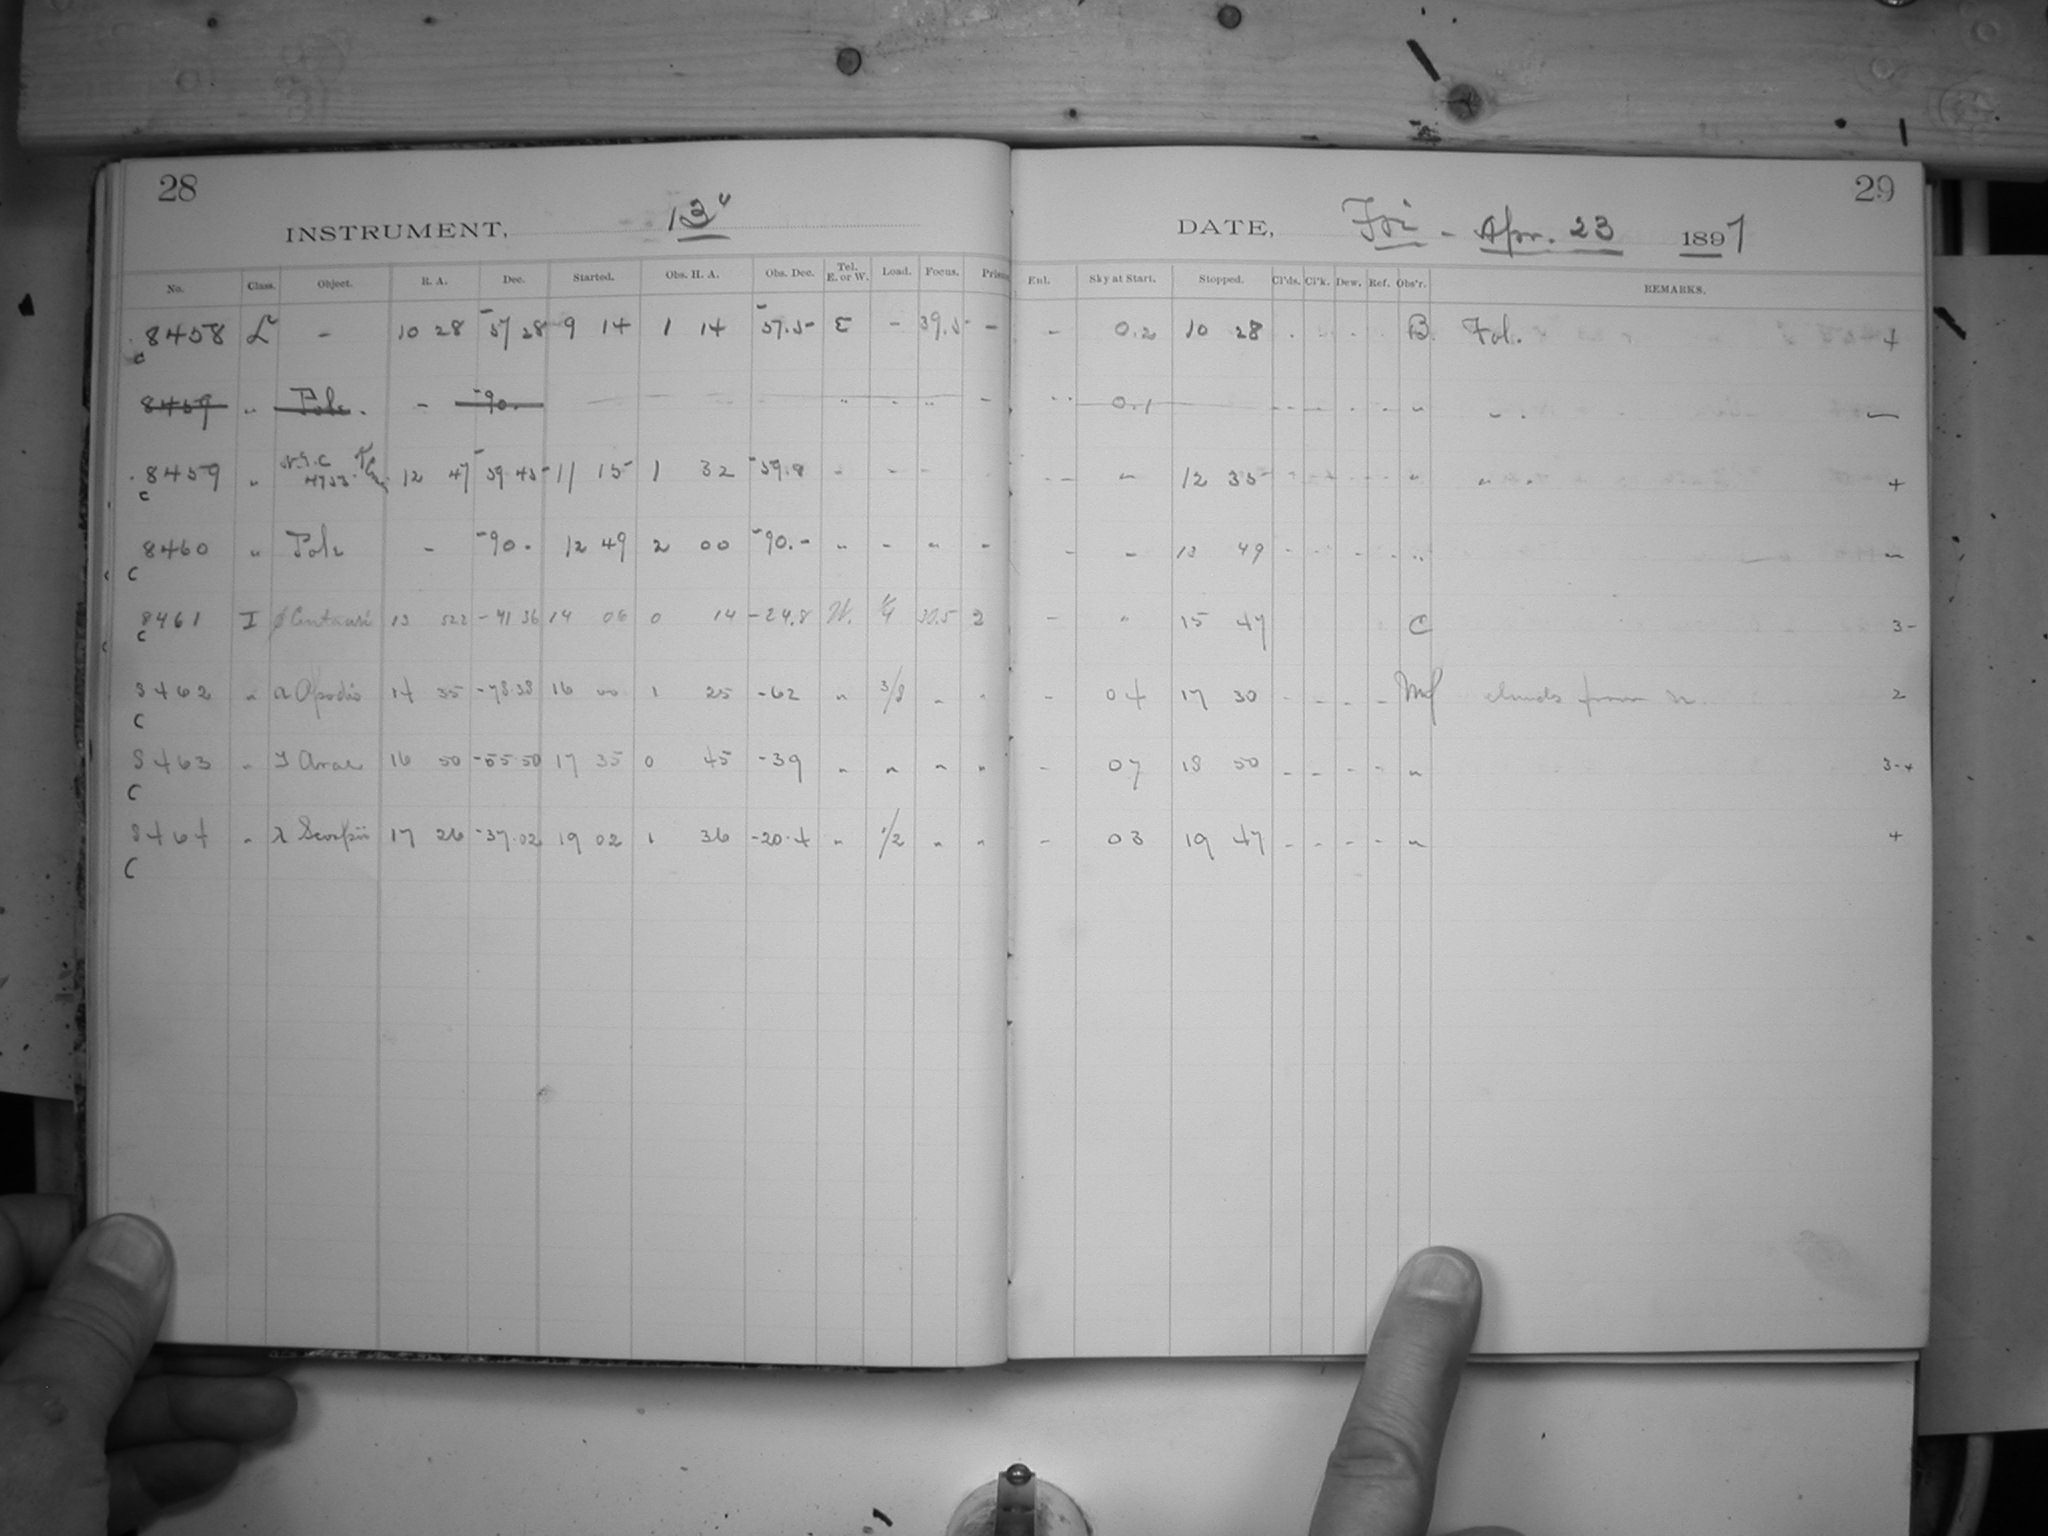 28
INSTRUMENT, 13"
No. Class. Object. R. A. Dec. Started. Obs. H. A. Obs. Dec. Tel. E. or W. Load. Focus.
8458 L - 10 28 -57 28 9 14 1 14 -57.5 E - 39.5 -
c
8459 " Pole. - -90.
8459 " N.G.C 4755 12 47 -59 45 11 15 1 32 -59.8 - - -
c
8460 " Pole - -90. 12 49 2 00 -90.- " - " -
c
8461 I Centauri 13 52.2 -41 36 14 06 0 14 -24.8 W. 1/4 30.5 2
c
8462 " α Apodis 14 35 -78.38 16 00 1 25 -62 " 3/8 " "
C
8463 " Arae 16 50 -55 50 17 35 0 45 -39 " " " "
C
8464 " λ Scorpii 17 26 -37.02 19 02 1 36 -20.4 " 1/2 " "
C
29
DATE, Fri - Apr. 23 1897
Enl. Sky at Start. Stopped. Cl'ds. Cl'k. Dew. Ref. Obs'r. REMARKS.
- 0.2 10 28 . . . . B. Fol. +
0.1
" 12 35 " " . +
- " 13 49 - - - - " -
- " 15 47 C 3-
- 04 17 30 - - - - clouds from n. 2
- 07 18 50 - - - - " 3-4
- 03 19 47 - - - - " 4